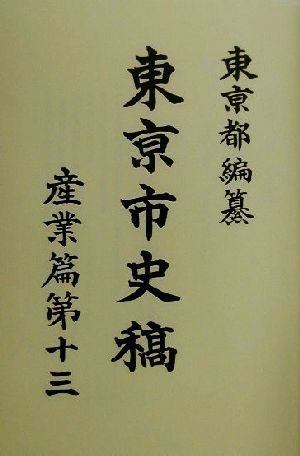 東亰都編纂
東亰市史稿
産業篇第十三